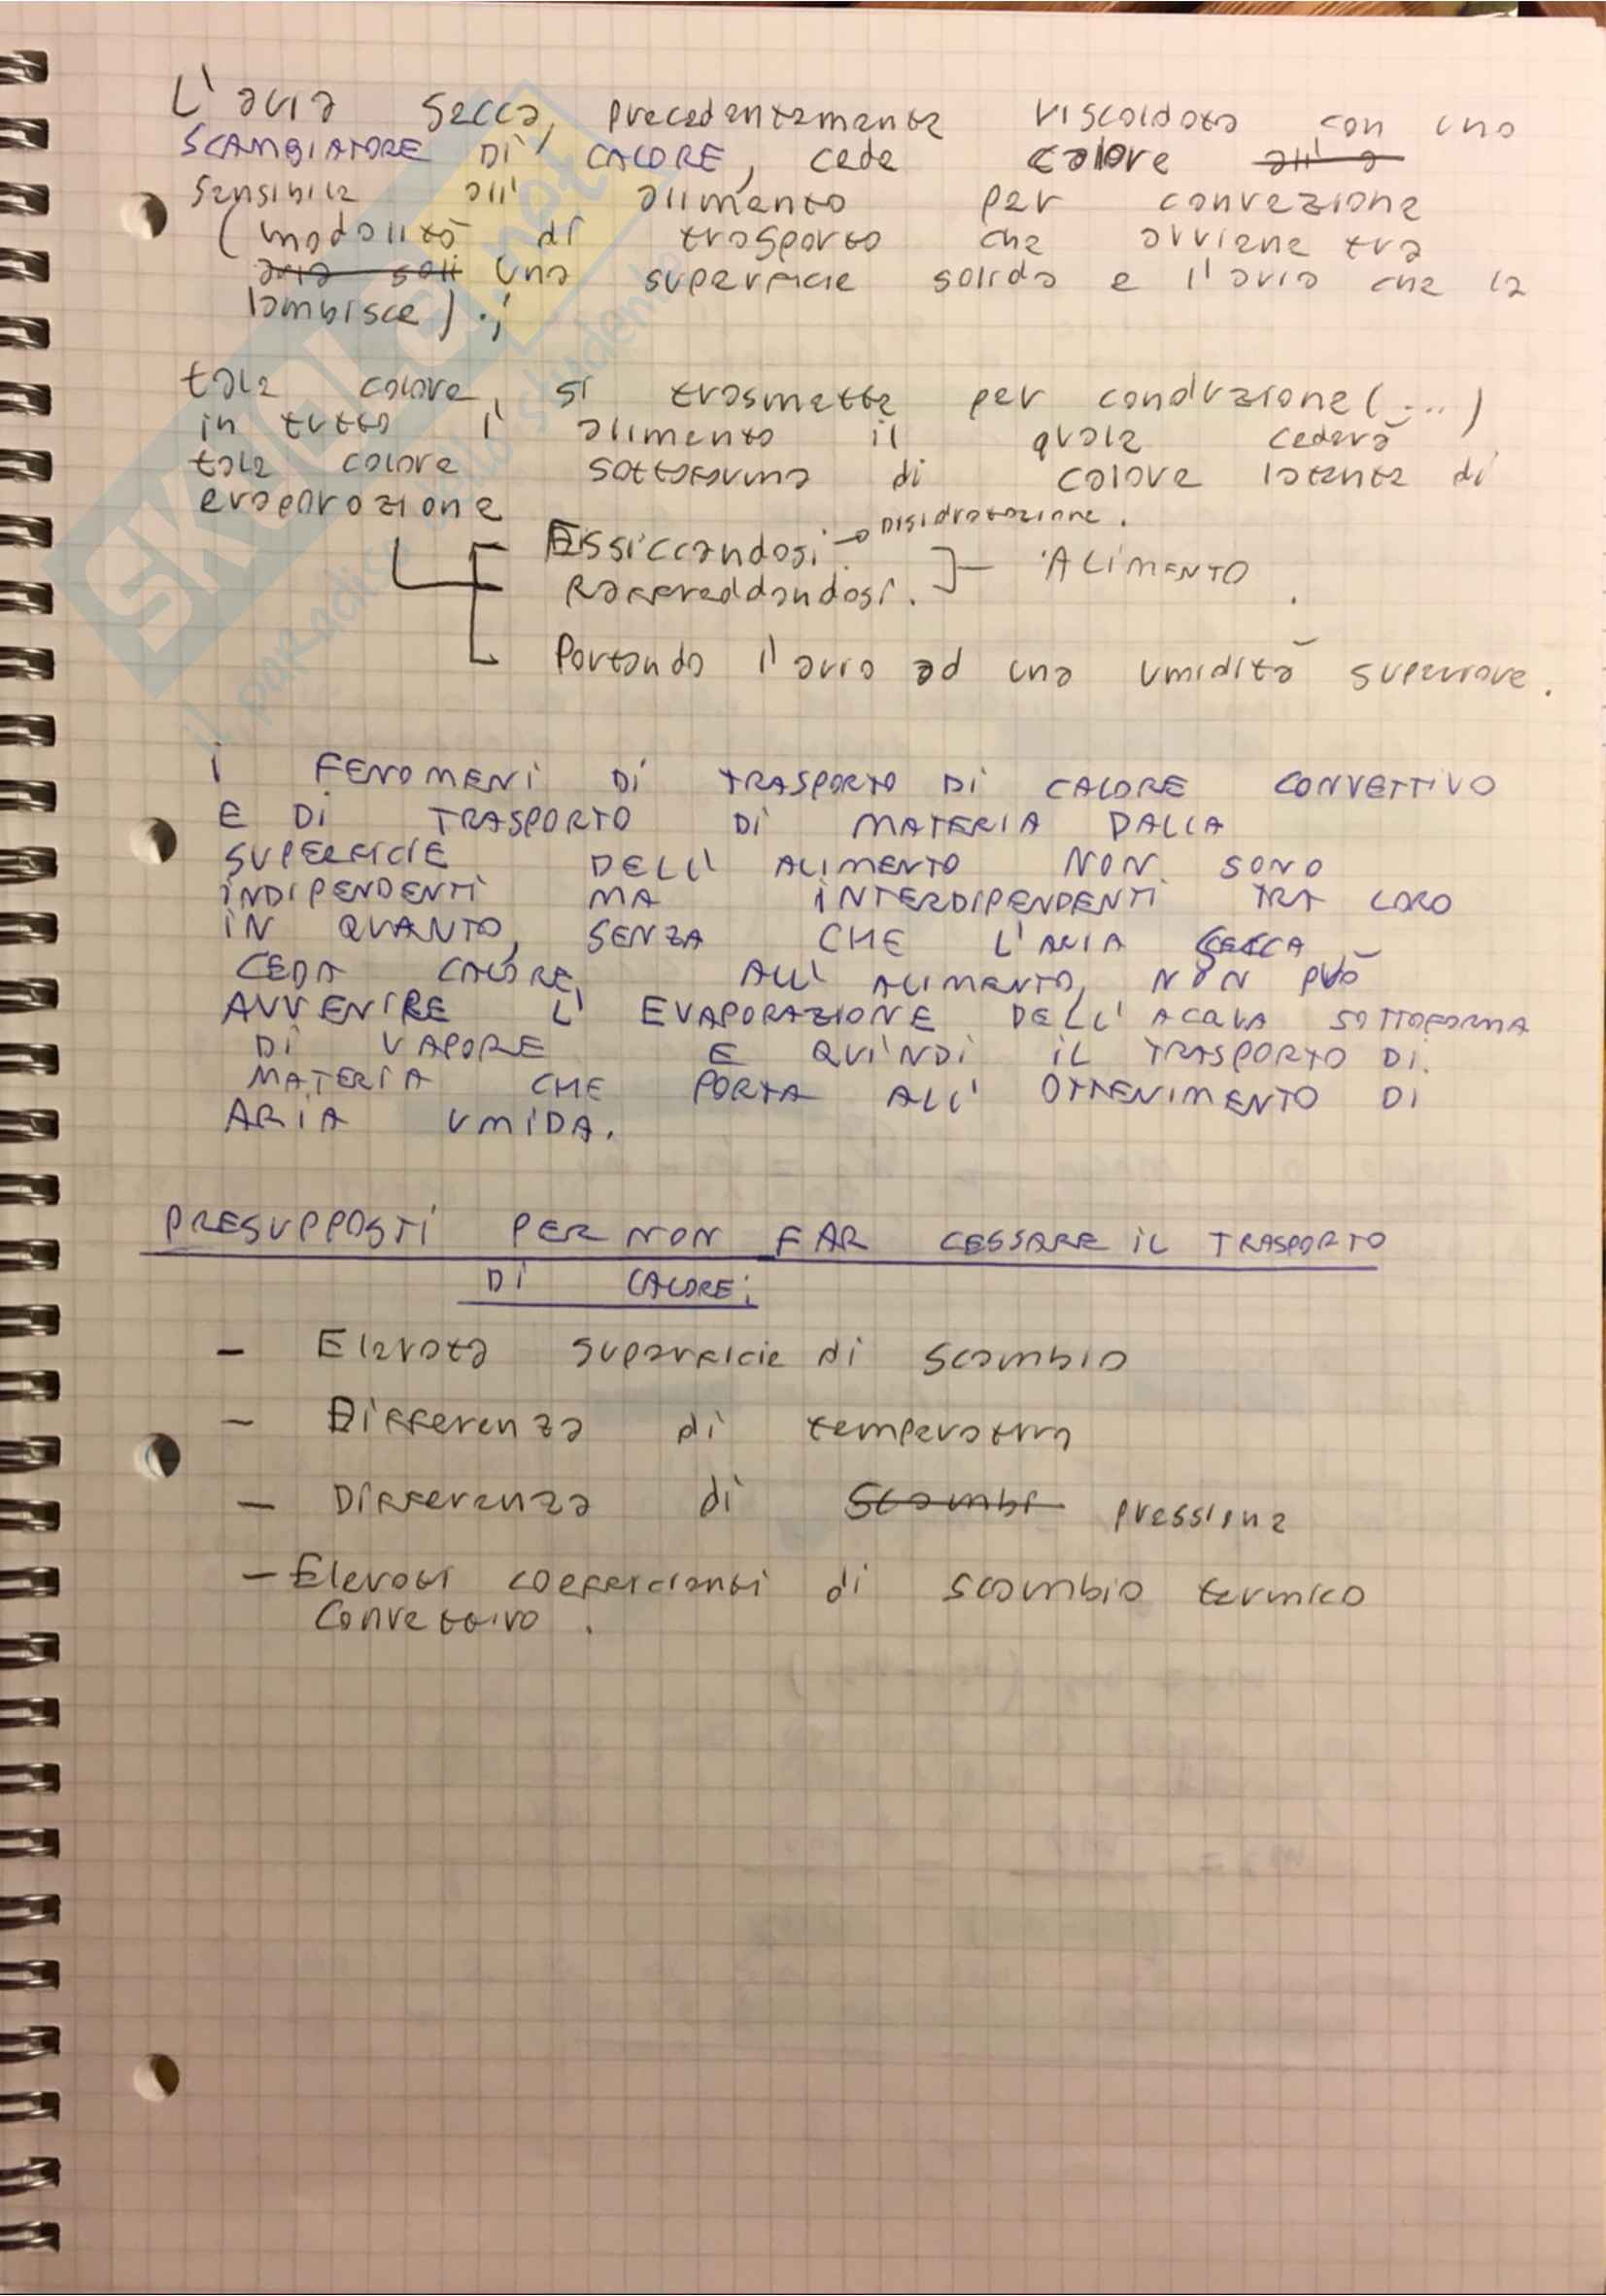 L'aria secca, precedentemente riscaldata con uno
SCAMBIATORE DI CALORE, cede calore all'a
sensibile all' alimento per convezione
(modalità di trasporto che avviene tra
aria soli una superficie solida e l'aria che la
lambisce).;
tale calore, si trasmette per conduzione (...)
in tutto l' alimento il quale cederà
tale calore sottoforma di calore latente di
evaporazione
Essiccandosi. → Disidratazione.
Raffreddandosi. ALIMENTO
Portando l'aria ad una umidità superiore.
I FENOMENI DI TRASPORTO DI CALORE CONVETTIVO
E DI TRASPORTO DI MATERIA DALLA
SUPERFICIE DELL' ALIMENTO NON SONO
INDIPENDENTI MA INTERDIPENDENTI TRA LORO
IN QUANTO, SENZA CHE L'ARIA SECCA
CEDA CALORE, ALL' ALIMENTO, NON PUÒ
AVVENIRE L' EVAPORAZIONE DELL' ACQUA SOTTOFORMA
DI VAPORE E QUINDI IL TRASPORTO DI
MATERIA CHE PORTA ALL' OTTENIMENTO DI
ARIA UMIDA.
PRESUPPOSTI PER NON FAR CESSARE IL TRASPORTO
DI CALORE:
- Elevata superficie di scambio
- Differenza di temperatura
- Differenza di Scambi pressione
- Elevati coefficienti di scambio termico
convettivo.
SKUOLA.net
il paradiso dello studente